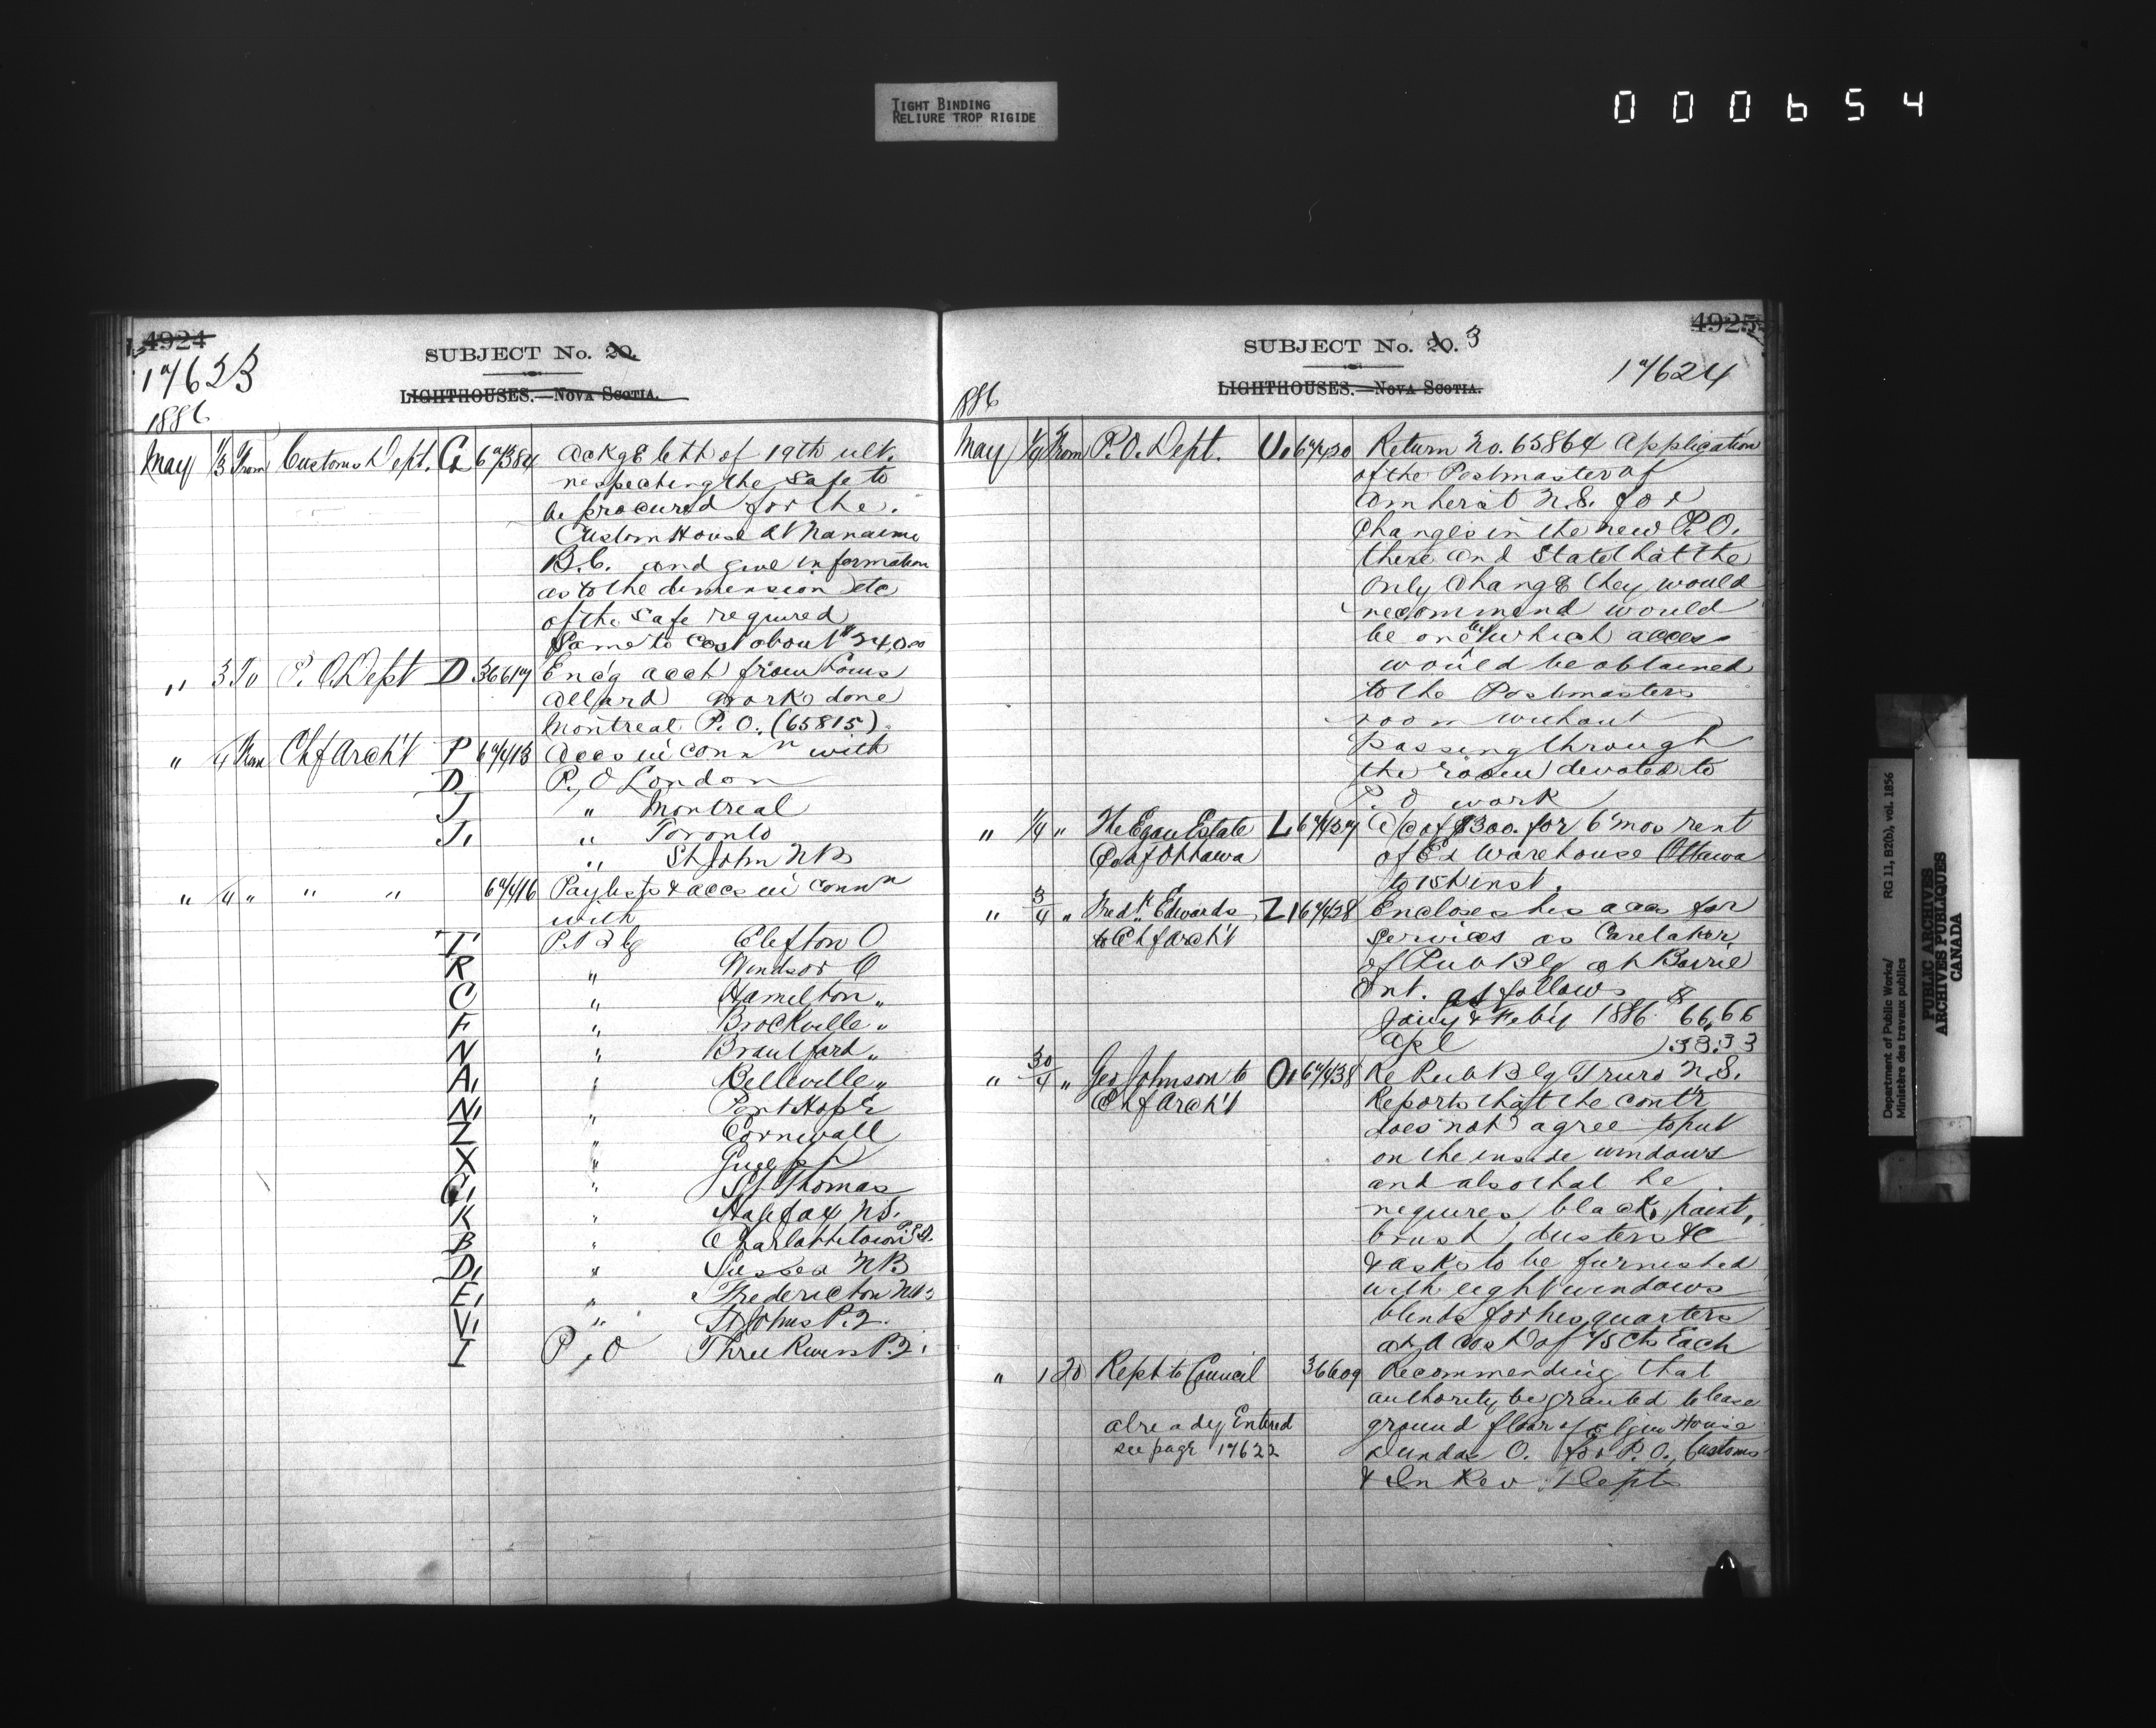 TIGHT BINDING
RELIURE TROP RIGIDE
000654
4924
SUBJECT No. 20.
17623
LIGHTHOUSES.—NOVA SCOTIA.
1886
May 1/3 From Customs Dept. G 67384 Ackge letter of 19th ult.
respecting the Safe to
be procured for the
Custom House at Nanaimo
B.C. and give information
as to the dimension etc
of the safe required
Same to cost about $240.00
" 3 To P.O. Dept D 36617 Enc'g acct from Louis
Allard work done
Montreal P.O. (65815)
" 4 From Chf Arch't P 67413 Accs in connn with
D P.O London
J " Montreal
J1 " Toronto
" St John NB
" 4 " " " 67416 Paylists & accs in connn
with
T P. Bldg Clifton O
R " Windsor O
C " Hamilton "
F " Brockville "
N " Brantford "
A1 " Belleville "
N1 " Port Hope
Z " Cornwall
X " Guelph
C1 " St Thomas
K " Halifax NS.
B " Charlottetown P.E.I.
D1 " Sussex NB
E1 " Fredericton NB
V1 " St Johns P.Q.
I P.O Three Rivers P.Q.
4925
SUBJECT No. 20. 3
17624
LIGHTHOUSES.—NOVA SCOTIA.
1886
May 1/4 From P.O. Dept. U1 67420 Return No. 65864 Application
of the Postmaster of
Amherst N.S. for
Changes in the new P.O.
there and State that the
only change they would
recommend would
be one by which access
would be obtained
to the Postmasters
room without
passing through
the room devoted to
P.O work
" 1/4 " The Egan Estate L 67437 A/c of $300. for 6 mos rent
Co of Ottawa of Ex Warehouse Ottawa
to 15th inst.
" 3/4 " Fredk Edwards Z1 67428 Encloses his accs for
to Chf Arch't services as Caretaker
of Pub Bldg at Barrie
Ont. as follows
Jany & Feby 1886 $66.66
Apl 33.33
" 30/4 " Geo Johnson to O1 67438 Re Pub Bldg Truro N.S.
Chf Arch't Reports that the contr
does not agree to put
on the inside windows
and also that he
requires black paint,
brush, dusters &c
& asks to be furnished
with eight windows
blinds for his quarters
at a cost of 75 cts Each
" 1 20 Rept to Council 36609 Recommending that
authority be granted to lease
already Entered ground floor of Elgin House
see page 17622 Dundas O. for P.O. Customs
& In Rev Depts
Department of Public Works/ RG 11, B2(b), vol. 1856
Ministère des travaux publics
PUBLIC ARCHIVES
ARCHIVES PUBLIQUES
CANADA